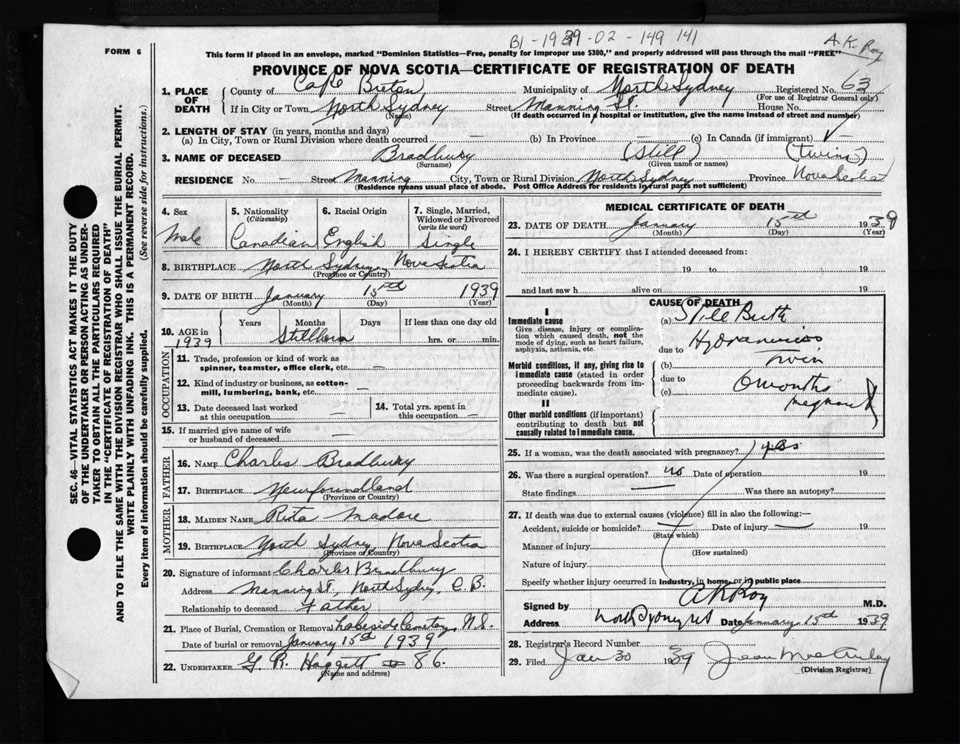 B1-1939-02-149 141
A.K. Roy
FORM 6
This form if placed in an envelope, marked "Dominion Statistics—Free, penalty for improper use $300," and properly addressed will pass through the mail "FREE"
PROVINCE OF NOVA SCOTIA—CERTIFICATE OF REGISTRATION OF DEATH
1. PLACE OF DEATH
County of Cape Breton Municipality of North Sydney Registered No. 63
(For use of Registrar General only)
If in City or Town North Sydney Street Manning St. House No.
(Name) (If death occurred in a hospital or institution, give the name instead of street and number)
2. LENGTH OF STAY (in years, months and days)
(a) In City, Town or Rural Division where death occurred — (b) In Province — (c) In Canada (if immigrant)
3. NAME OF DECEASED Bradbury (Still) (twins)
(Surname) (Given name or names)
RESIDENCE No. — Street Manning City, Town or Rural Division North Sydney Province Nova Scotia
(Residence means usual place of abode. Post Office Address for residents in rural parts not sufficient)
4. Sex Male
5. Nationality (Citizenship) Canadian
6. Racial Origin English
7. Single, Married, Widowed or Divorced (write the word) Single
8. BIRTHPLACE North Sydney, Nova Scotia
(Province or Country)
9. DATE OF BIRTH January 15th 1939
(Month) (Day) (Year)
10. AGE in 1939 Years Months Days If less than one day old
Stillborn hrs. or min.
OCCUPATION
11. Trade, profession or kind of work as spinner, teamster, office clerk, etc. —
12. Kind of industry or business, as cotton-mill, lumbering, bank, etc. —
13. Date deceased last worked at this occupation —
14. Total yrs. spent in this occupation —
15. If married give name of wife or husband of deceased —
FATHER
16. NAME Charles Bradbury
17. BIRTHPLACE Newfoundland
(Province or Country)
MOTHER
18. MAIDEN NAME Rita Madore
19. BIRTHPLACE North Sydney, Nova Scotia
(Province or Country)
20. Signature of informant Charles Bradbury
Address Manning St., North Sydney, C.B.
Relationship to deceased Father
21. Place of Burial, Cremation or Removal Lakeside Cemetery, N.S.
Date of burial or removal January 15th 1939
22. UNDERTAKER G. R. 86.
(Name and address)
MEDICAL CERTIFICATE OF DEATH
23. DATE OF DEATH January 15th 1939
(Month) (Day) (Year)
24. I HEREBY CERTIFY that I attended deceased from:
19 to 19
and last saw h alive on 19
CAUSE OF DEATH
I
Immediate cause
Give disease, injury or complication which caused death, not the mode of dying, such as heart failure, asphyxia, asthenia, etc.
(a) Still Birth
due to Hydramnios
Morbid conditions, if any, giving rise to immediate cause (stated in order proceeding backwards from immediate cause).
(b) Twin
due to
(c) 6 months
II
Other morbid conditions (if important) contributing to death but not causally related to immediate cause.
25. If a woman, was the death associated with pregnancy? yes
26. Was there a surgical operation? no Date of operation 19
State findings Was there an autopsy?
27. If death was due to external causes (violence) fill in also the following:—
Accident, suicide or homicide? Date of injury 19
(State which)
Manner of injury
(How sustained)
Nature of injury
Specify whether injury occurred in industry, in home, or in public place
Signed by A K Roy M.D.
Address North Sydney Date January 15th 1939
28. Registrar's Record Number
29. Filed Jan 30 1939 Jean
(Division Registrar)
SEC. 46—VITAL STATISTICS ACT MAKES IT THE DUTY
OF THE UNDERTAKER OR PERSON ACTING AS UNDER-
TAKER TO OBTAIN ALL THE PARTICULARS REQUIRED
IN THE "CERTIFICATE OF REGISTRATION OF DEATH"
AND TO FILE THE SAME WITH THE DIVISION REGISTRAR WHO SHALL ISSUE THE BURIAL PERMIT.
WRITE PLAINLY WITH UNFADING INK. THIS IS A PERMANENT RECORD.
Every item of information should be carefully supplied. (See reverse side for instructions.)